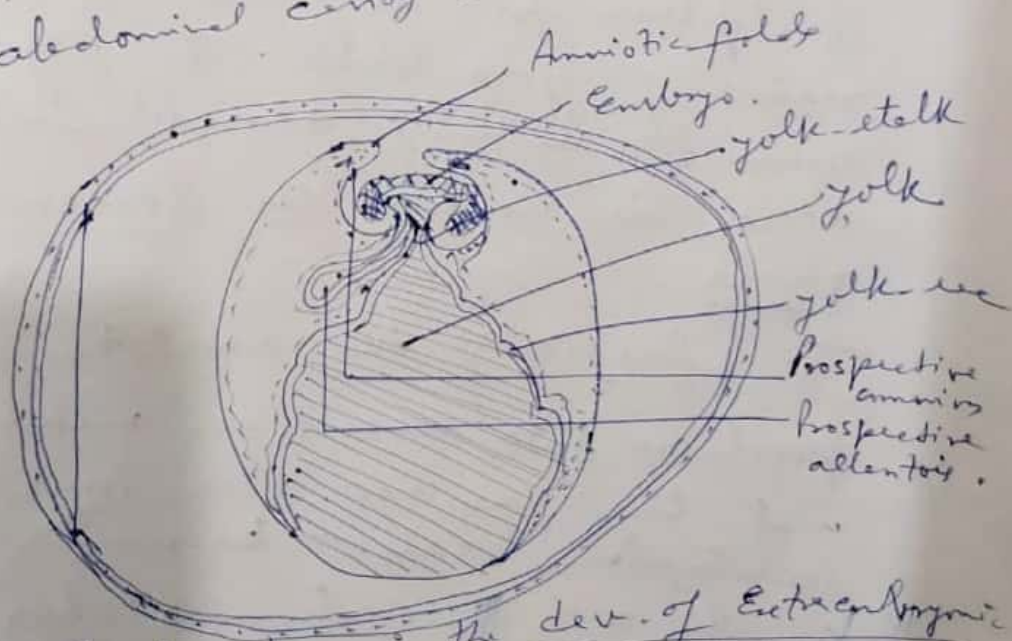 abedominal
Amniotic folds
Embryo.
yolk-stalk
yolk
yolk-sac
Prospective
amnion
Prospective
allantois.
the dev. of Extraembryonic